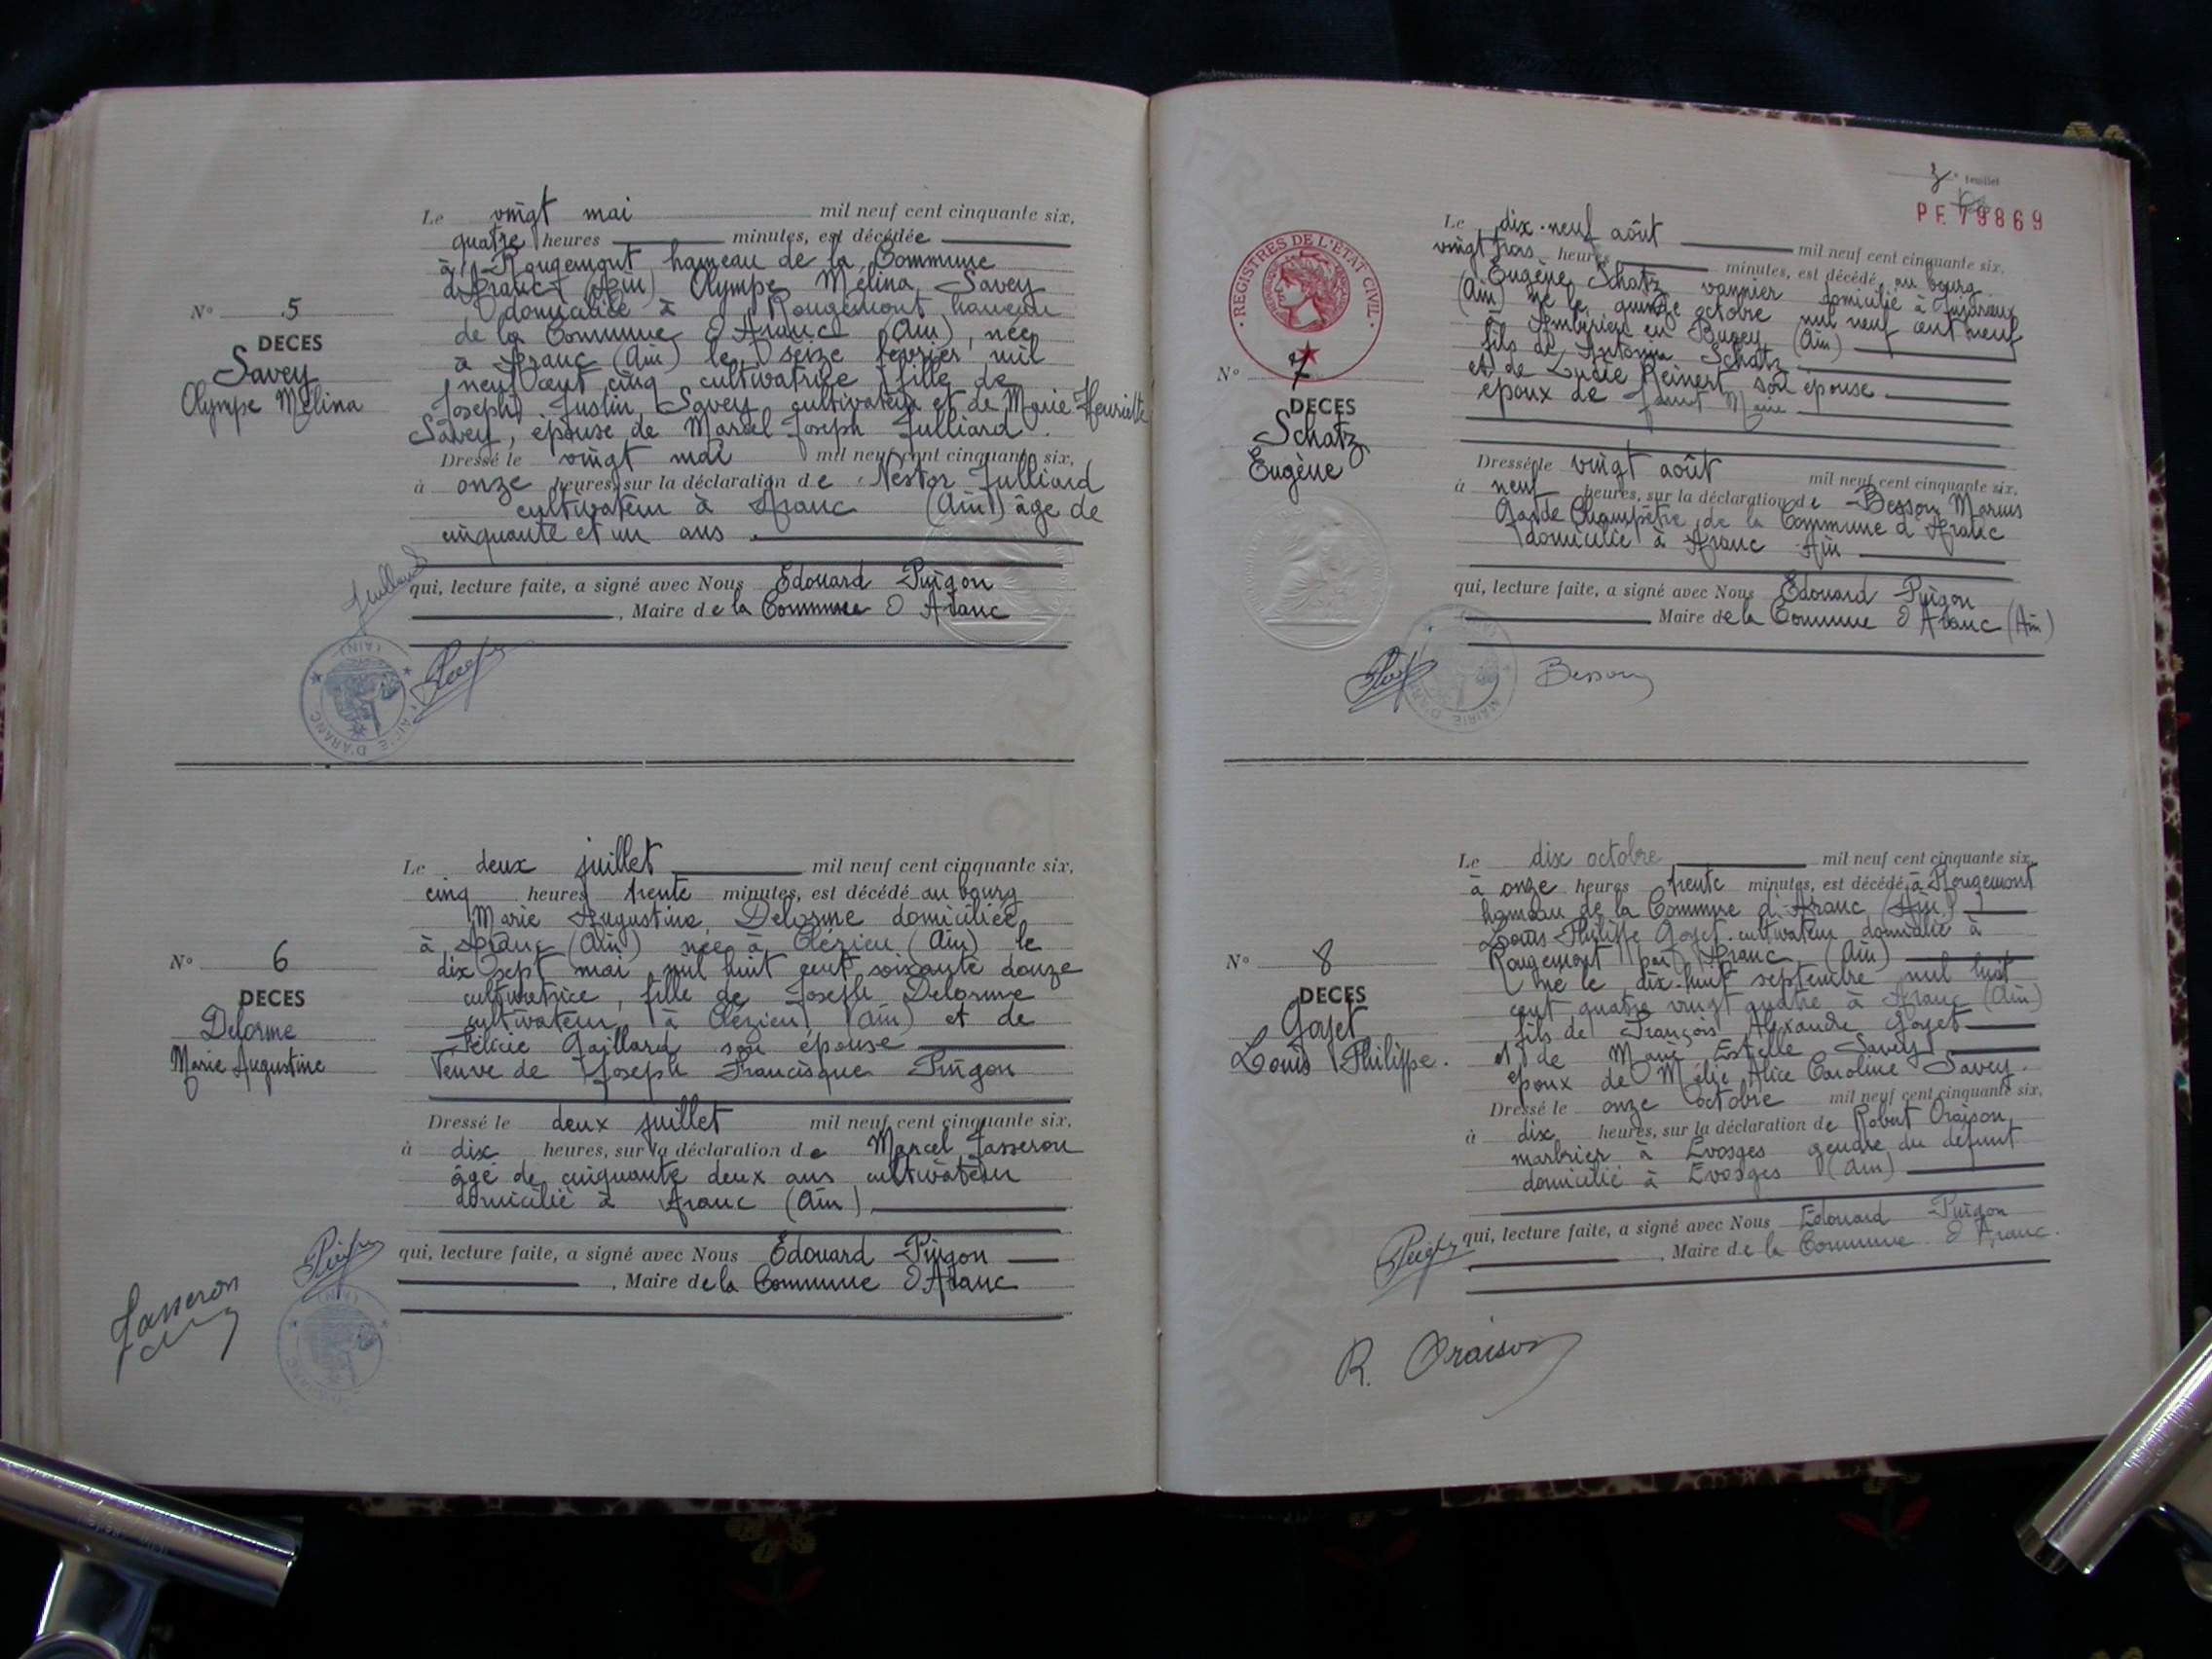 N° 5
DECES
Savey
Olympe Mélina
Le vingt mai mil neuf cent cinquante six,
quatre heures minutes, est décédée
à Rougemont, hameau de la Commune
d'Aranc (Ain) Olympe Mélina Savey
domiciliée à Rougemont hameau
de la Commune d'Aranc (Ain), née
à Aranc (Ain) le seize février mil
neuf cent cinq cultivatrice, fille de
Joseph Justin Savey cultivateur et de Marie Henriette
Savey, épouse de Marcel Joseph Julliard.
Dressé le vingt mai mil neuf cent cinquante six,
à onze heures, sur la déclaration de Nestor Julliard
cultivateur à Aranc (Ain) âgé de
cinquante et un ans.
qui, lecture faite, a signé avec Nous Edouard Pingon
, Maire de la Commune d'Aranc
Julliard
N° 6
DECES
Delorme
Marie Augustine
Le deux juillet mil neuf cent cinquante six,
cinq heures trente minutes, est décédé au bourg
Marie Augustine Delorme domiciliée
à Aranc (Ain) née à Clézieu (Ain) le
dix sept mai mil huit cent soixante douze
cultivatrice, fille de Joseph Delorme
cultivateur à Clézieu (Ain) et de
Félicie Gaillard son épouse
Veuve de Joseph Francisque Pingon
Dressé le deux juillet mil neuf cent cinquante six,
à dix heures, sur la déclaration de Marcel Jasseron
âgé de cinquante deux ans cultivateur
domicilié à Aranc (Ain)
qui, lecture faite, a signé avec Nous Edouard Pingon
, Maire de la Commune d'Aranc
Jasseron
3e feuillet
PF 79869
REGISTRES DE L'ETAT CIVIL
N° 7
DECES
Schatz
Eugène
Le dix-neuf août mil neuf cent cinquante six,
vingt trois heures minutes, est décédé au bourg
Eugène Schatz vannier domicilié à Injurieux
(Ain) né le quinze octobre mil neuf cent neuf
à Ambérieu en Bugey (Ain)
fils de Antoine Schatz
et de Lucie Reinert, son épouse
époux de Marie
Dressé le vingt août mil neuf cent cinquante six,
à neuf heures, sur la déclaration de Besson Marius
Garde Champêtre de la Commune d'Aranc
domicilié à Aranc Ain
qui, lecture faite, a signé avec Nous Edouard Pingon
Maire de la Commune d'Aranc (Ain)
MAIRIE D'ARANC
Besson
N° 8
DECES
Goyet
Louis Philippe.
Le dix octobre mil neuf cent cinquante six,
à onze heures trente minutes, est décédé à Rougemont
hameau de la Commune d'Aranc (Ain)
Louis-Philippe Goyet cultivateur domicilié à
Rougemont par Aranc (Ain)
né le dix-huit septembre mil huit
cent quatre vingt quatre à Aranc (Ain)
fils de François Alexandre Goyet
et de Marie Estelle Savey
époux de Mélie Alice Caroline Savey.
Dressé le onze octobre mil neuf cent cinquante six,
à dix heures, sur la déclaration de Robert Oraison,
marbrier à Evosges gendre du défunt
domicilié à Evosges (Ain)
qui, lecture faite, a signé avec Nous Edouard Pingon
, Maire de la Commune d'Aranc.
R. Oraison